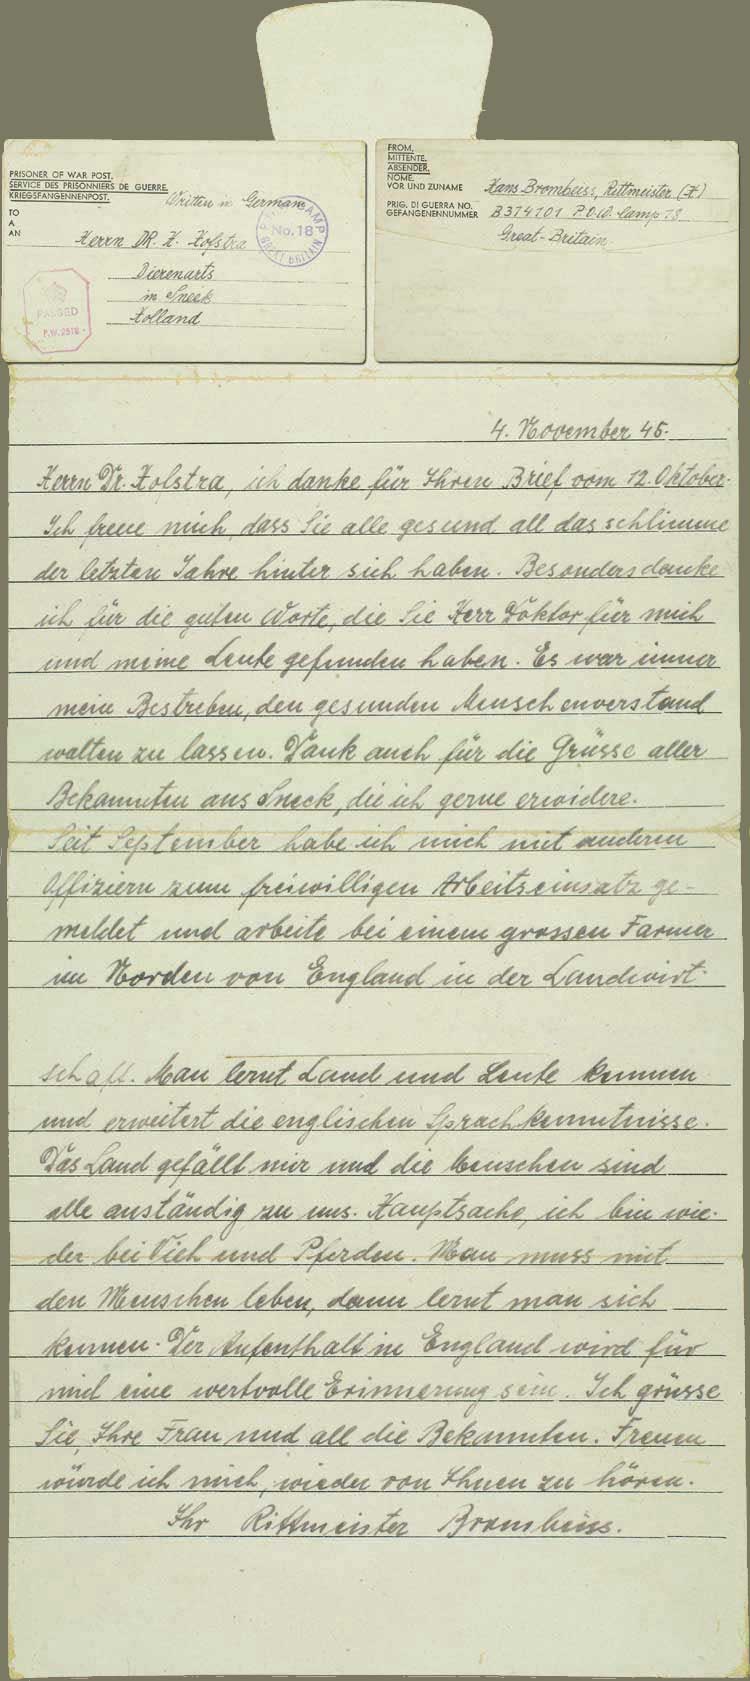 PRISONER OF WAR POST.
SERVICE DES PRISONNIERS DE GUERRE.
KRIEGSFANGENNENPOST.
Written in German
TO
A
AN
Herrn DR. H. Hofstra
Dierenarts
in Sneek
Holland
P.O.W. CAMP
No. 18
GREAT BRITAIN
PASSED
P.W. 2518
FROM,
MITTENTE.
ABSENDER.
NOME.
VOR UND ZUNAME
Hans Brombeiss, Rittmeister
PRIG. DI GUERRA NO.
GEFANGENENNUMMER
B374101 P.O.W. Camp 18
Great-Britain
4. November 45.
Herrn Dr. Hofstra, ich danke für Ihren Brief vom 12. Oktober.
Ich freue mich, dass Sie alle gesund all das schlimme
der letzten Jahre hinter sich haben. Besonders danke
ich für die guten Worte, die Sie Herr Doktor für mich
und meine Leute gefunden haben. Es war immer
mein Bestreben, den gesunden Menschenverstand
walten zu lassen. Dank auch für die Grüsse aller
Bekannten aus Sneek, die ich gerne erwidere.
Seit September habe ich mich mit anderen
Offiziern zum freiwilligen Arbeitseinsatz ge-
meldet und arbeite bei einem grossen Farmer
im Norden von England in der Landwirt-
schaft. Man lernt Land und Leute kennen
und erweitert die englischen Sprachkenntnisse.
Das Land gefällt mir und die Menschen sind
alle anständig zu uns. Hauptsache, ich bin wie-
der bei Vieh und Pferden. Man muss mit
den Menschen leben, dann lernt man sich
kennen. Der Aufenthalt in England wird für
mich eine wertvolle Erinnerung sein. Ich grüsse
Sie, Ihre Frau und all die Bekannten. Freuen
würde ich mich, wieder von Ihnen zu hören.
Ihr Rittmeister Brombeiss.